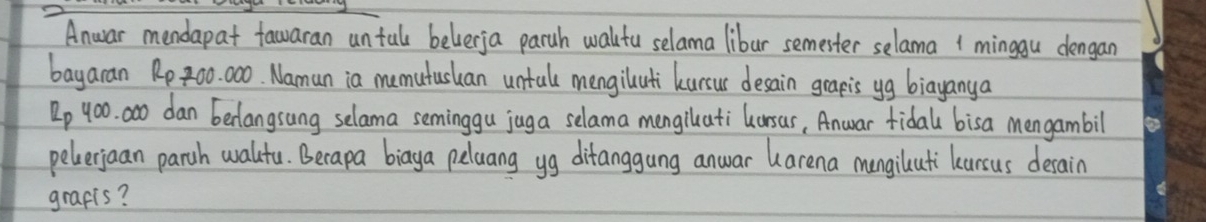 Anwar mendapat tawaran untuk bekerja paruh waktu selama libur semester selama 1 minggu dengan
bayaran Rp 700.000. Namun ia memutuskan untuk mengikuti kursus desain grafis yg biayanya
Rp 400.000 dan berlangsung selama seminggu juga selama mengikuti kursus, Anwar tidak bisa mengambil
pekerjaan paruh waktu. Berapa biaya peluang yg ditanggung anwar karena mengikuti kursus desain
grafis?